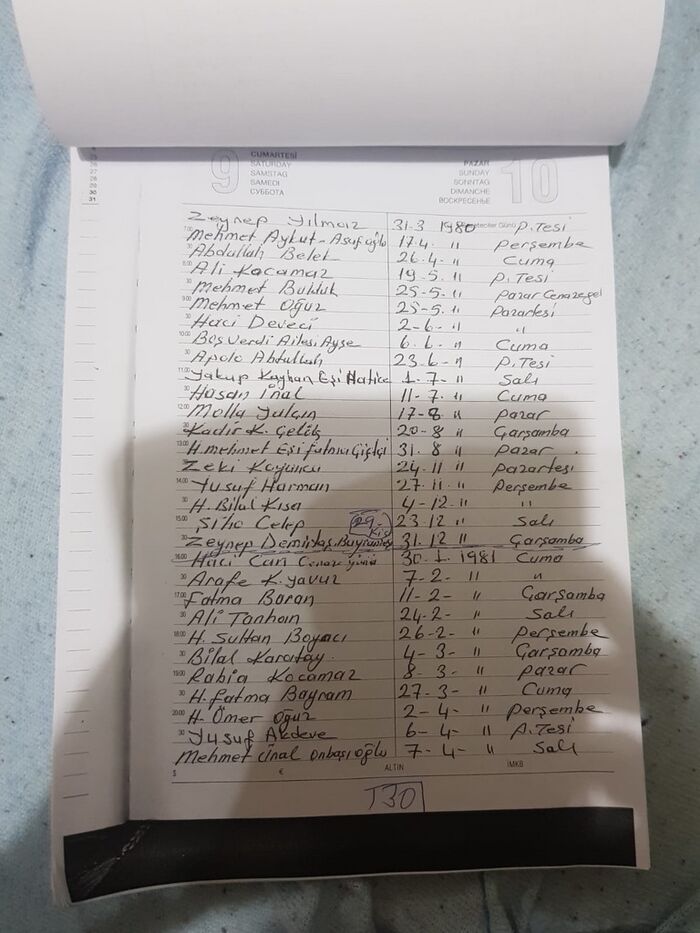 9 CUMARTESİ
SATURDAY
SAMSTAG
SAMEDI
СУББОТА
PAZAR 10
SUNDAY
SONNTAG
DIMANCHE
ВОСКРЕСЕНЬЕ
Zeynep Yılmaz 31-3 1980 P.Tesi
Mehmet Aykut-Asufoğlu 17.4. " Perşembe
Abdullah Belek 26-4- " Cuma
Ali Kocamaz 19-5- " P.Tesi
Mehmet 25-5- " Pazar
Mehmet Oğuz 25-5- " Pazartesi
Haci Deveci 2-6- " "
Boş verdi Ailesi Ayşe 6.6- " Cuma
Apolo Abdullah 23.6- " P.Tesi
Yakup Kayhan Eşi Hatice 1-7- " Salı
Hasan İnal 11-7- " Cuma
Molla Yalçın 17-8 " Pazar
Kadir K. Çelik 20-8 " Çarşamba
H. mehmet Eşi fatma Çiftçi 31-8 " Pazar
Zeki Koyuncu 24-11 " Pazartesi
Yusuf Harman 27-11 " Perşembe
H. Bilal Kısa 4-12- " "
Celep 29- Kiş 23-12 " Salı
Zeynep Demirtaş. 31-12 " Çarşamba
Haci Can Cenaze günü 30-1-1981 Cuma
Arafe K. yavuz 7-2- " "
Fatma Baran 11-2- " Çarşamba
Ali Tanhan 24-2- " Salı
H. Sultan Boyacı 26-2- " Perşembe
Bilal Karatay. 4-3- " Çarşamba
Rabia Kocamaz 8-3- " Pazar
H. fatma Bayram 27-3- " Cuma
H. Ömer Oğuz 2-4- " Perşembe
Yusuf Akdeve 6-4- " P.Tesi
Mehmet Ünal onbaşıoğlu 7-4- " Salı
$ € ALTIN İMKB
130